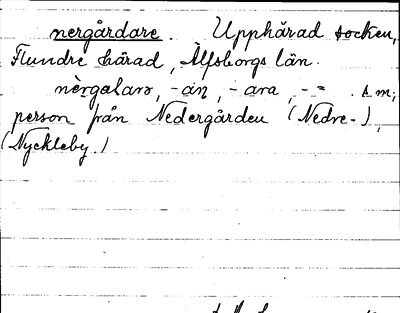 nergårdare. Upphärad socken,
Flundre härad, Älfsborgs län.
nèrgaLarə, -ən, -ara, -= . s.m.;
person från Nedergården (Nedre-),
(Nyckleby.)